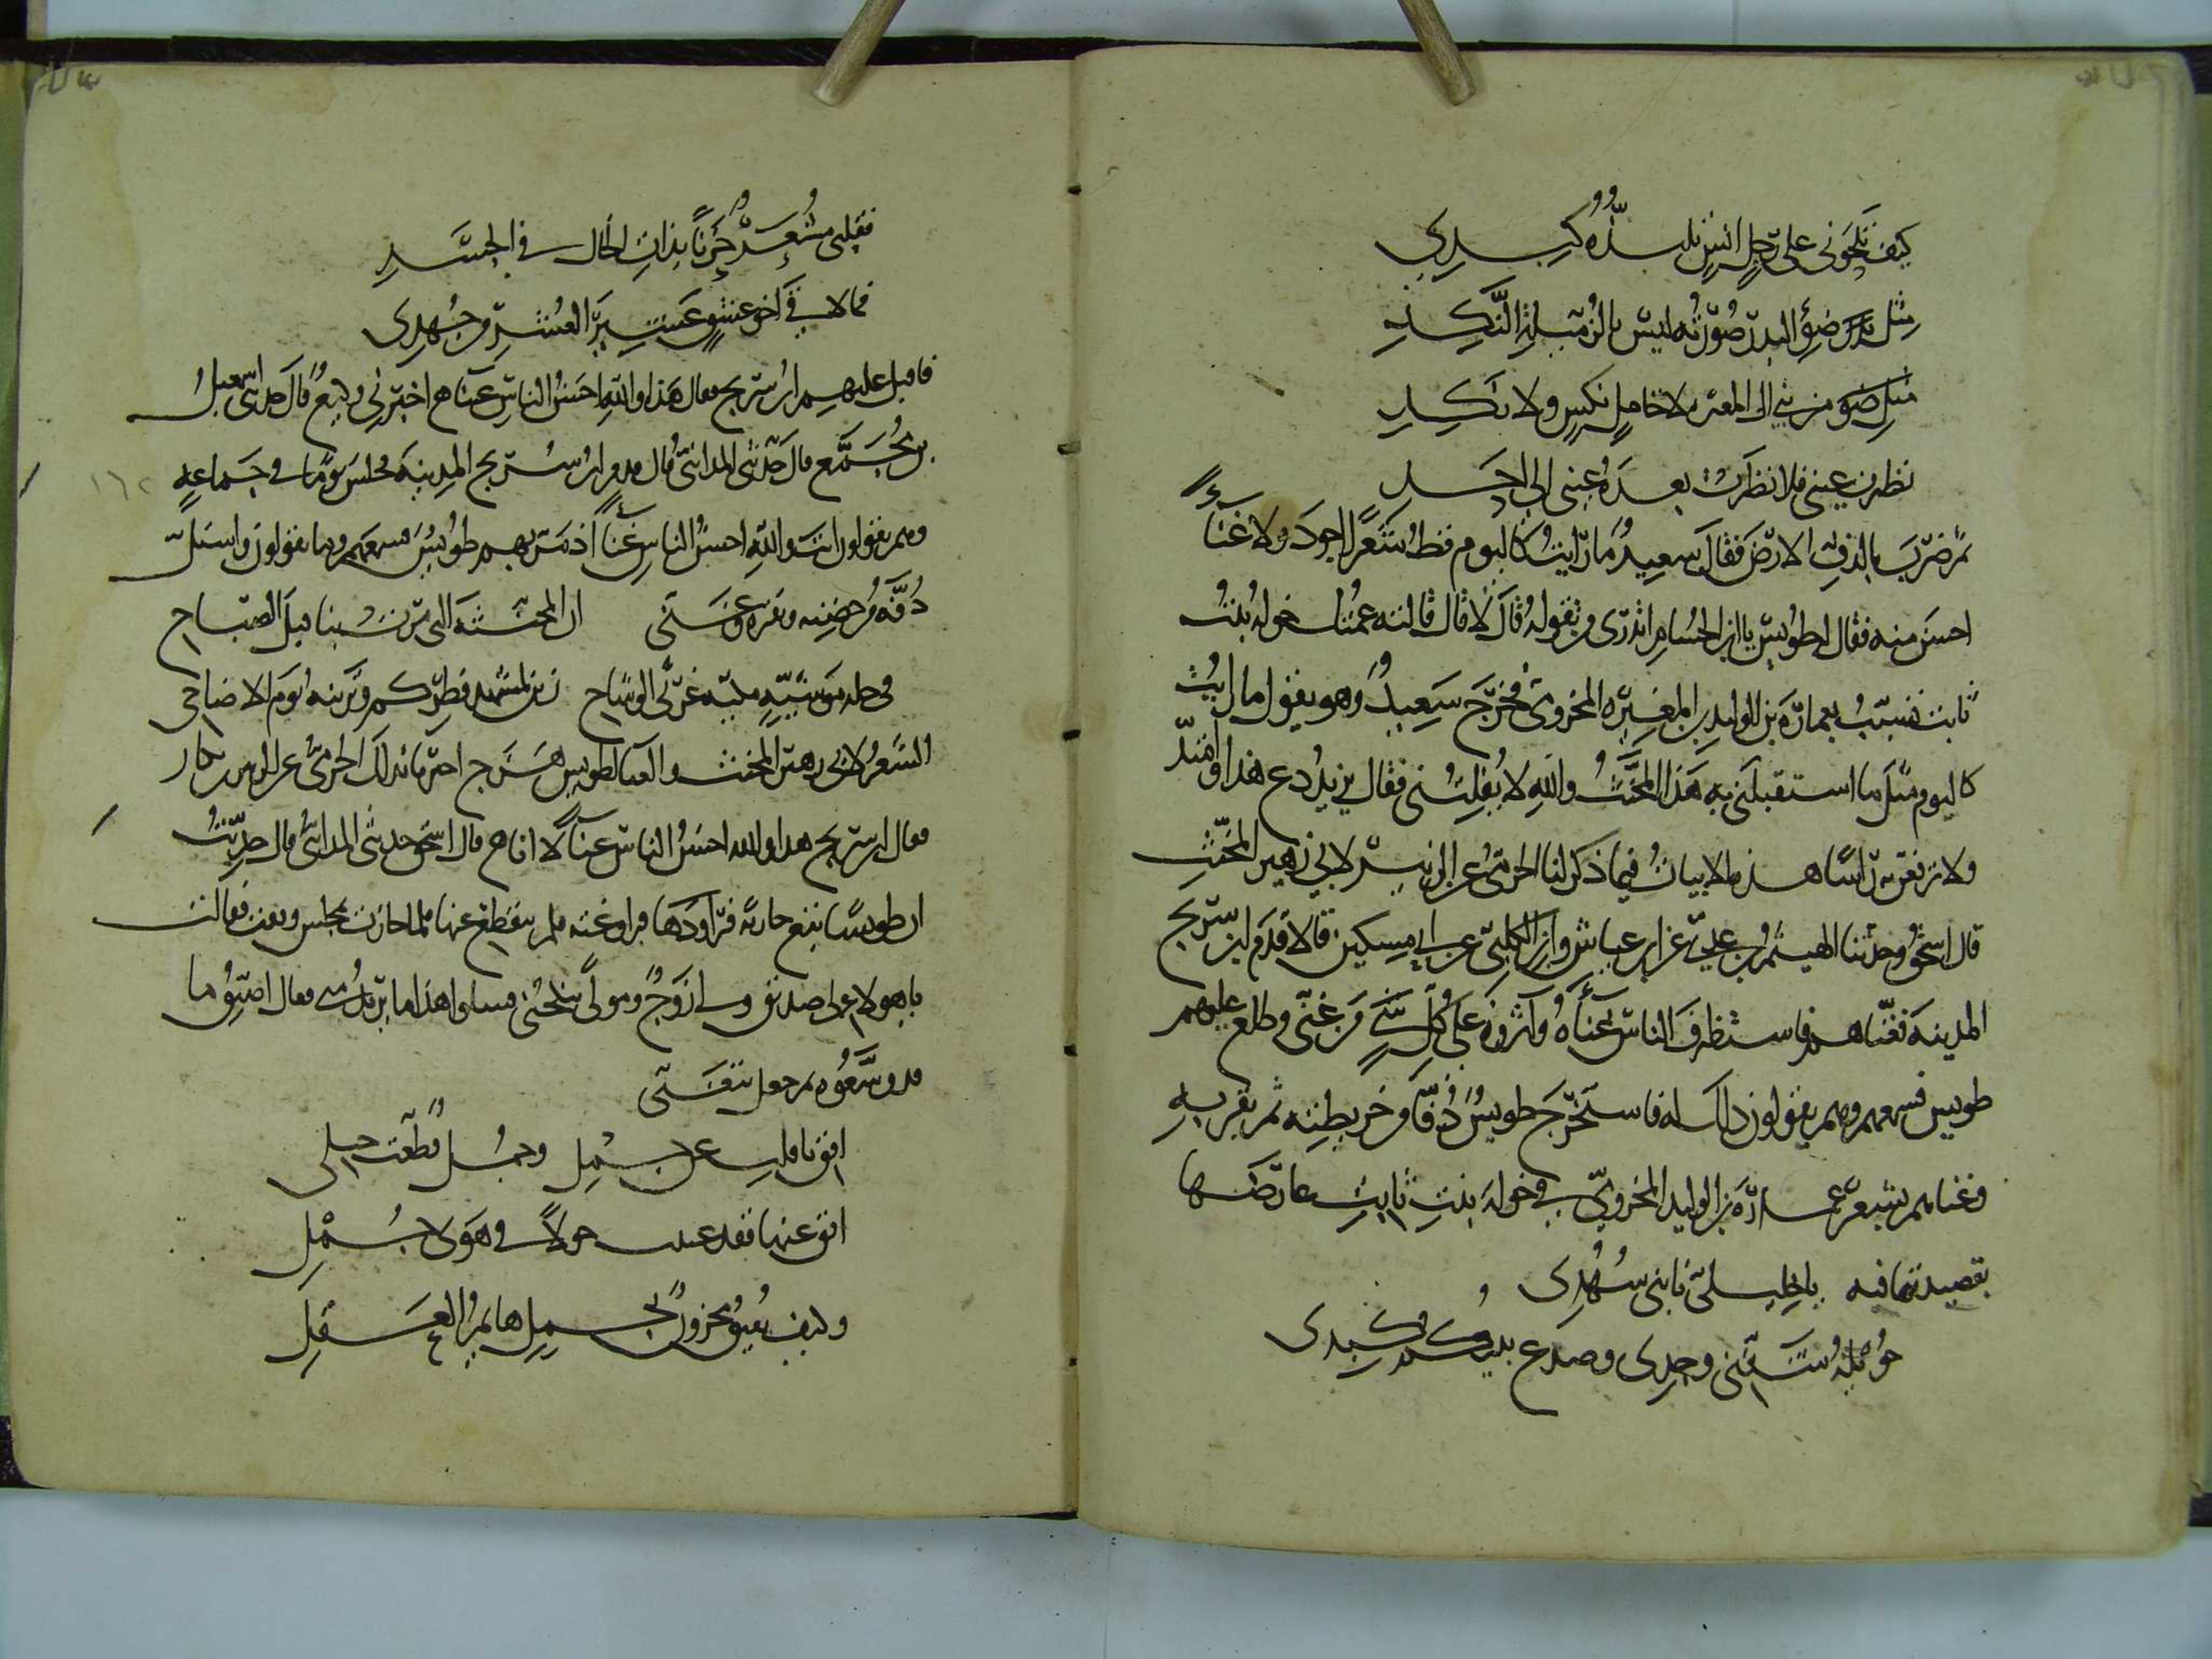 كيف تلحوني على رجل انس تلذه كبدي
مثل ضوء البدر صورته ليس بالزميلة النكد
من بني ال المغيرة لا خامل نكس ولا نكد
نظرت عيني فلا نظرت بعده عيني الى احد
ثم ضرب بالدف الارض فقال سعيد ما رايت كاليوم قط شعرا اجود ولا غناء
احسن منه فقال له طويس يا ابن الحسام اتدري من يقوله قال لا قال قالته عمتك خولة بنت
ثابت تشبب بعمارة بن الوليد بن المغيرة المخزومي فخرج سعيد وهو يقول ما رايت
كاليوم مثل ما استقبلني به هذا المخنث والله لا يفلتني فقال يزيد دع هذا وامته
ولا ترفع به راسا هذه الابيات فيما ذكر لنا الحرمي عن الزبير لابن زهير المخنث
قال اسحق وحدثنا الهيثم بن عدي عن ابن عياش وابن الكلبي عن ابي مسكين قالا قدم ابن سريج
المدينة فغناهم فاستظرف الناس غناءه واثروه على كل من غنى وطلع عليهم
طويس فسمعهم وهم يقولون ذلك له فاستخرج طويس دفا من خريطته ثم نقر به
وغناهم بشعر عمارة بن الوليد المخزومي في خولة بنت ثابت عارضها
بقصيدتها فيه يا خليلي نابني سهدي
فقلبي مشعر حزنا بذات الخال في الخد
فما لاقى اخو عشق عشير العشر من جهدي
فاقبل عليهم ابن سريج فقال هذا والله احسن الناس غناء اخبرني وكيع قال حدثني اسمعيل
بن مجمع قال حدثني المدائني قال قدم ابن سريج المدينة فجلس يوما في جماعة
وهم يقولون انت والله احسن الناس غناء اذ مر بهم طويس فسمعهم وما يقولون فاستل
دفه من حضنه ونقره وغنى ان المخنثة التي مرت بنا قبل الصباح
في حلة موشية مكية غرثى الوشاح زين لمشهد فطركم وتزينه يوم الاضاحي
الشعر لابن زهير المخنث والغنا لطويس هزج اخبرنا بذلك الحرمي عن الزبير بن بكار
فقال ابن سريج هذا والله احسن الناس غناء لا انا قال اسحق حدثني المدائني قال حدثت
ان طويسا تبع جارية فراودها فراوغته فلم ينقطع عنها فلما جازت بمجلس وقفت فقالت
يا هولاء لي صديق ولي زوج ومولى ينكحني فسلوا هذا ما يريد مني فقال اضيق ما
قد وسعوه ثم جعل يتغنى
افق يا قلب عن جمل وجمل قطعت حبلي
افق عنها فقد عنيت حولا في هوى جمل
وكيف يفيق محزون بجمل هائم العقل